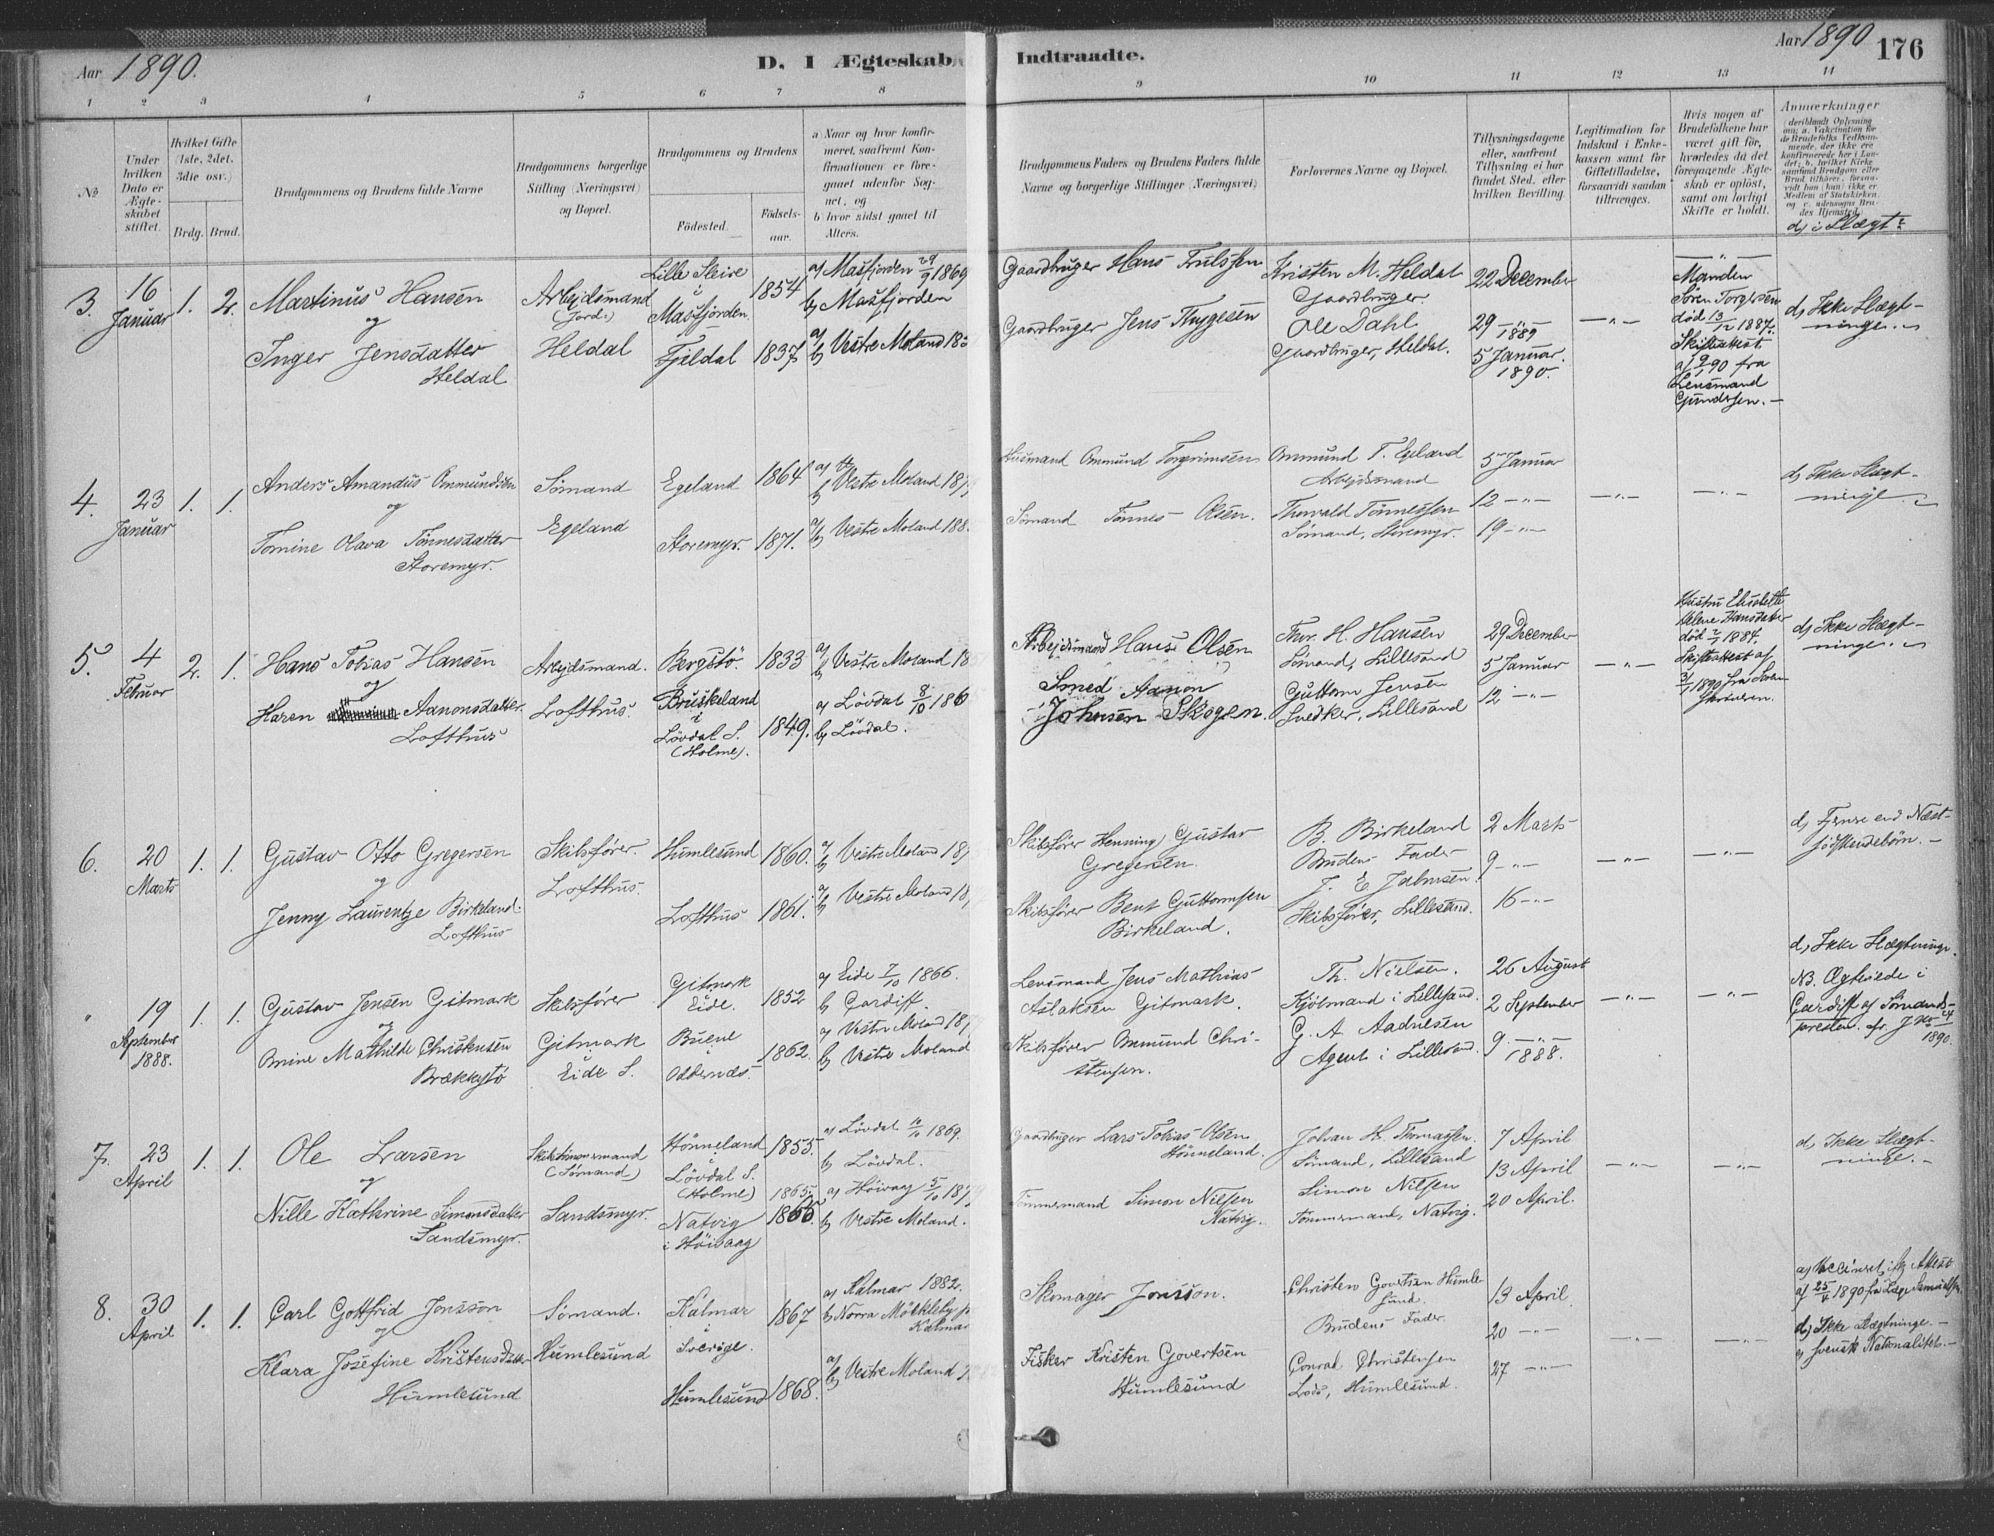 Aar 1890.
D. I Ægteskab
Indtraadte.
Aar 1890
176
1 2 3 4 5 6 7 8 9 10 11 12 13 14
No
Under hvilken Dato er Ægteskabet stiftet.
Hvilket Gifte (1ste, 2det, 3die osv.)
Brdg. Brud.
Brudgommens og Brudens fulde Navne
Brudgommens borgerlige Stilling (Næringsvei) og Bopæl.
Brudgommens og Brudens
Fødested. Fødselsaar.
a) Naar og hvor konfirmeret, saafremt Konfirmationen er foregaaet udenfor Sognet, og
b) hvor sidst gaaet til Alters.
Brudgommens Faders og Brudens Faders fulde Navne og borgerlige Stillinger (Næringsvei)
Forlovernes Navne og Bopæl.
Tillysningsdagene eller, saafremt Tillysning ei har fundet Sted, efter hvilken Bevilling.
Legitimation for Indskud i Enkekassen samt for Giftetilladelse, forsaavidt saadan tiltrænges.
Hvis nogen af Brudefolkene har været gift før, hvorledes da det foregaaende Ægteskab er opløst, samt om lovligt Skifte er holdt.
Anmærkninger
d) i Slægt?
3.
16 Januar
1. 2.
Martinus Hansen
og
Inger Jensdatter
Heldal
Arbejdsmand
(Jord.)
Heldal
Lille Steire
i
Masfjorden.
1854
Fjeldal 1837
a) Masfjorden 29/9 1869
b) Masfjorden
a) b) Vestre Moland
Gaardbruger Hans Trulssen
Gaardbruger Jens Thygesen
Kristen M. Heldal
Gaardbruger.
Ole Dahl
Gaardbruger, Heldal.
22 December
29 –"– 1889
5 Januar.
1890.
–"–
Manden
Søren Torgersen
død 13/12 1887.
Skifteattest
af 9/1 90 fra
Lensmand
Gundersen.–
d) Ikke Slægtninge.
4.
23 Januar
1. 1.
Anders Amandus Ommundsen
og
Tomine Olava Tønnesdatter
Storemyr.
Sømand
Egeland
Egeland 1864
Storemyr. 1871.
a) b) Vestre Moland
a) b) Vestre Moland
Husmand Ommund Torgrimsen
Sømand Tønnes Olsen.
Ommund T. Egeland
Arbejdsmand
Thorvald Tønnessen
Sømand, Storemyr.
5 Januar
12 –"–
19 –"–
–"–
–"–
d) Ikke Slægtninge
5.
4 Februar
2. 1.
Hans Tobias Hansen
og
Karen Aanonsdatter
Lofthus
Arbejdsmand.
Lofthus.
Bergstø. 1833
Bruskeland
i
Løvdal S.
(Holme).
1849.
a) b) Vestre Moland
a) Løvdal 8/10 186
b) Løvdal.
Arbejdsmand Hans Olsen
Smed Aanon
Johnsen Skogen.
Thor. H. Hansen
Sømand, Lillesand
Guttorm Jensen
Snedker, Lillesand
29 December
5 Januar
12 –"–
–"–
Hustru Elisabeth
Helene Hansdatter
død 1884.
Skifteattest af
3/1 1890 fra
d) Ikke Slægtninge.
6.
20 Marts
1. 1.
Gustav Otto Gregersen
og
Jenny Laurentze Birkeland.
Lofthus
Skibsfører.
Lofthus.
Humlesund 1860.
Lofthus 1861.
a) b) Vestre Moland
a) b) Vestre Moland
Skibsfører Henning Gustav
Gregersen.
Skibsfører Bent Guttormsen
Birkeland.
B. Birkeland
Brudens Fader
J. E. Jahnsen.
Skibsfører, Lillesand.
2 Marts
9 –"–
16 –"–
–"–
–"–
d) Fjernere end Næstsødskendebørn.–
"
19 September 1888.
1. 1.
Gustav Jensen Gitmark
og
Omine Mathilde Christensen
Brækkestø
Skibsfører
Gitmark
Eide S.
Gitmark
Eide. 1852
Buene
i
Oddernæs.
1862.
a) Eide 7/10 1866.
b) Cardiff.
a) Vestre Moland
b) Vestre Moland
Lensmand Jens Mathias
Aslaksen Gitmark.
Skibsfører Ommund Christensen.
Th. Nielsen.
Kjøbmand i Lillesand.
G. A. Aadnesen
Agent i Lillesand.
26 August
2 September
9 –"– 1888.
–"–
–"–
d) Ikke Slægtninge.
NB. Ægteviede i
Cardiff af Sømandspresten. cfr. J. No 24
1890.
7.
23 April
1. 1.
Ole Larsen
og
Nille Kathrine Simonsdatter
Sandsmyr.
Skibstømmermand
(Sømand)
Sandsmyr.
Hønneland
i
Løvdal S.
(Holme)
1855.
Natvig
i Høivaag
1865.
1866
a) Løvdal 10/10 1869.
b) Løvdal.
a) Høivaag 5/10 187
b) Vestre Moland.
Gaardbruger Lars Tobias Olsen
Hønneland.
Tømmermand Simon Nilsen
Natvig.
Johan H. Thomassen.
Sømand, Lillesand
Simon Nilsen
Tømmermand, Natvig.
7 April
13 April
20 April.
–"–
–"–
d) Ikke Slægtninge.–
8.
30 April
1. 1.
Carl Gottfrid Jonsson
og
Klara Josefine Kristensdatter
Humlesund
Sømand.
Humlesund
Kalmar
i
Sverige.
1867
Humlesund 1868.
a) Kalmar 1882.
b) Norra Möckleby
Kalmar
a) b) Vestre Moland
Skomager Jonsson.
Fisker Kristen Govertsen
Humlesund
Christen Govertsen Humlesund
Brudens Fader.
Conrad Christensen
Lods, Humlesund.
13 April
20 –"–
27 –"–
–"–
–"–
a) Vaccineret ifg Attest
af 25/4 1890 fra Læge
d) Ikke Slægtninge.–
Svensk Nationalitet.–